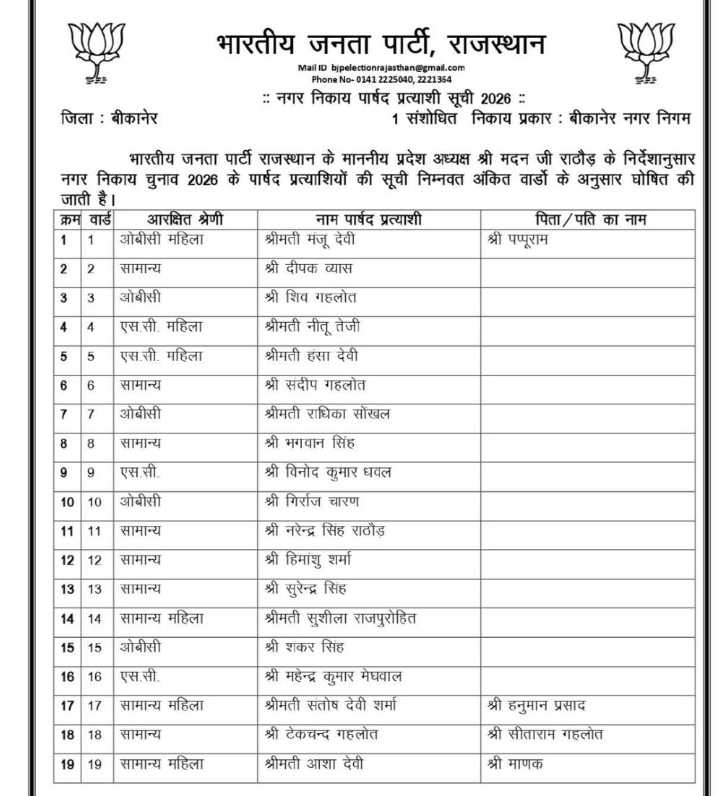 भारतीय जनता पार्टी, राजस्थान
Mail ID bjpelectionrajasthan@gmail.com
Phone No- 0141 2225040, 2221364
:: नगर निकाय पार्षद प्रत्याशी सूची 2026 ::
जिला : बीकानेर 1 संशोधित निकाय प्रकार : बीकानेर नगर निगम
भारतीय जनता पार्टी राजस्थान के माननीय प्रदेश अध्यक्ष श्री मदन जी राठौड़ के निर्देशानुसार
नगर निकाय चुनाव 2026 के पार्षद प्रत्याशियों की सूची निम्नवत अंकित वार्डो के अनुसार घोषित की
जाती है।
क्रम वार्ड आरक्षित श्रेणी नाम पार्षद प्रत्याशी पिता/पति का नाम
1 1 ओबीसी महिला श्रीमती मंजू देवी श्री पप्पूराम
2 2 सामान्य श्री दीपक व्यास
3 3 ओबीसी श्री शिव गहलोत
4 4 एस.सी. महिला श्रीमती नीतू तेजी
5 5 एस.सी. महिला श्रीमती हंसा देवी
6 6 सामान्य श्री संदीप गहलोत
7 7 ओबीसी श्रीमती राधिका सोंखल
8 8 सामान्य श्री भगवान सिंह
9 9 एस.सी. श्री विनोद कुमार धवल
10 10 ओबीसी श्री गिर्राज चारण
11 11 सामान्य श्री नरेन्द्र सिंह राठौड़
12 12 सामान्य श्री हिमांशु शर्मा
13 13 सामान्य श्री सुरेन्द्र सिंह
14 14 सामान्य महिला श्रीमती सुशीला राजपुरोहित
15 15 ओबीसी श्री शंकर सिंह
16 16 एस.सी. श्री महेन्द्र कुमार मेघवाल
17 17 सामान्य महिला श्रीमती संतोष देवी शर्मा श्री हनुमान प्रसाद
18 18 सामान्य श्री टेकचन्द गहलोत श्री सीताराम गहलोत
19 19 सामान्य महिला श्रीमती आशा देवी श्री माणक